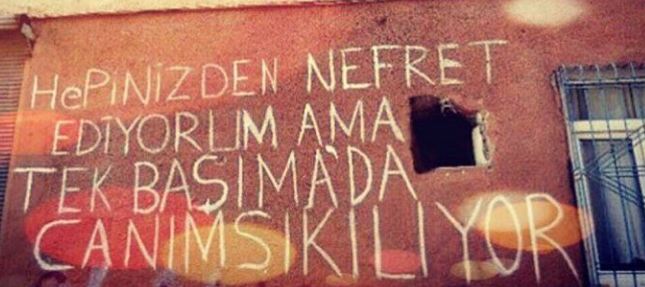 HePiNiZDEN NEFRET
EDİYORUM AMA
TEK BAŞIMA'DA
CANIMSIKILIYOR